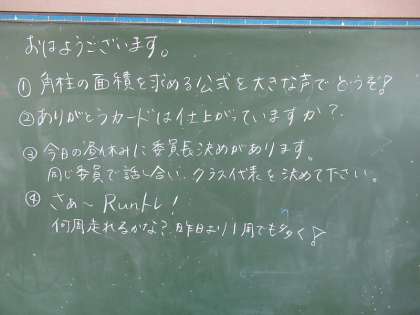 おはようございます。
① 角柱の面積を求める公式を大きな声でどうぞ!
② ありがとうカードは仕上がっていますか?
③ 今日の昼休みに委員長決めがあります。
同じ委員で話し合い、クラス代表を決めて下さい。
④ さぁ〜 Runトレ!
何周走れるかな?昨日より1周でも多く!